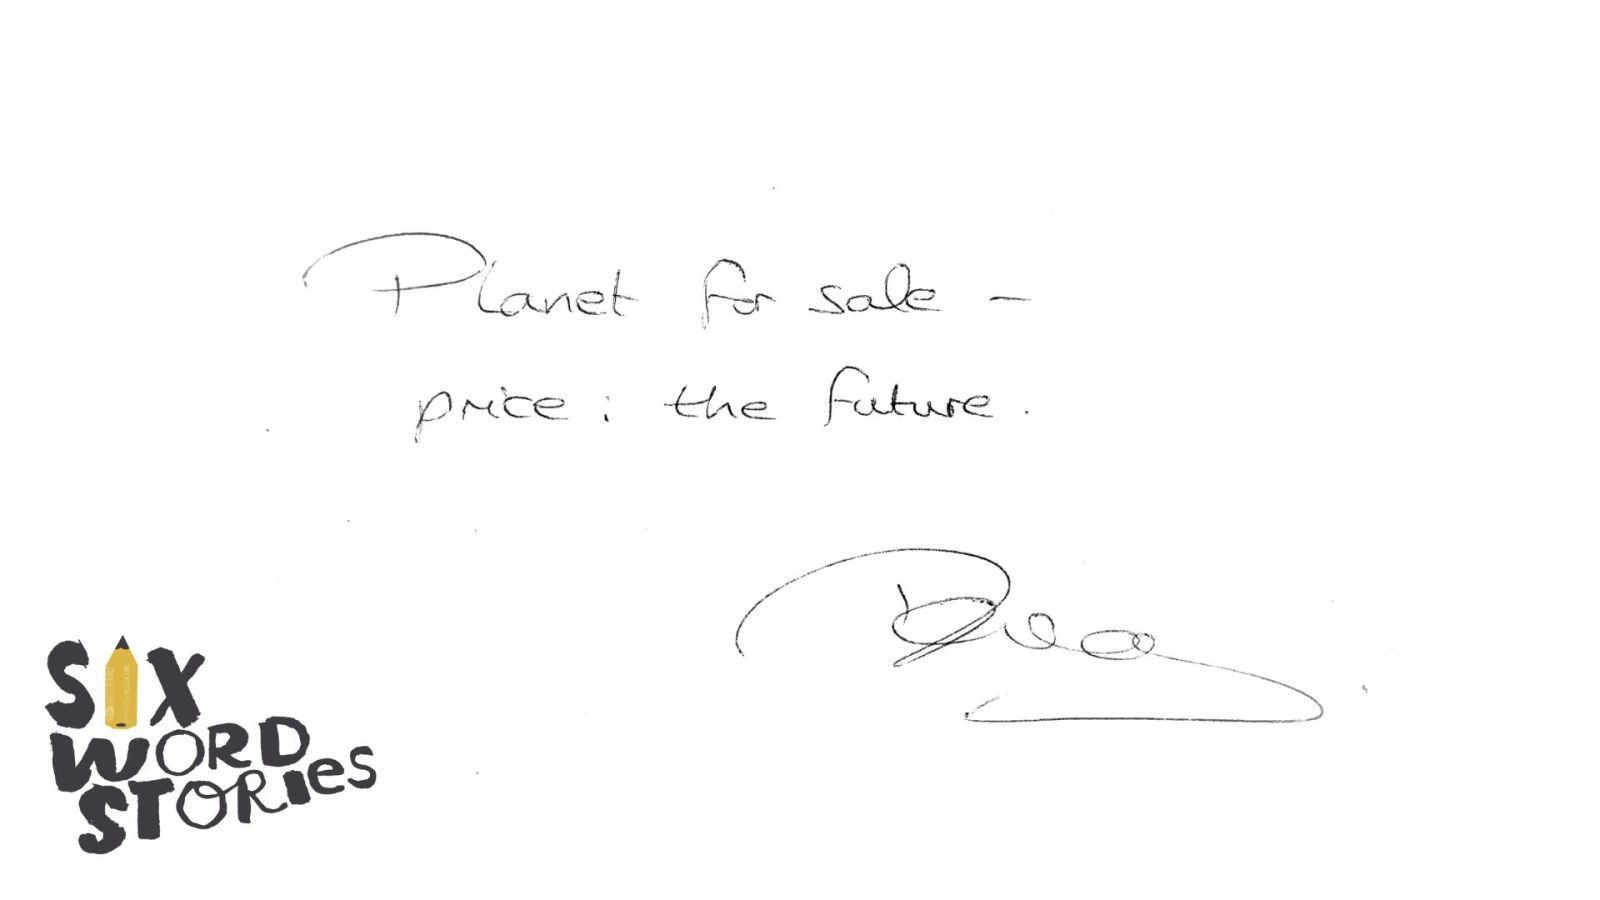 Planet for sale –
price : the future.
SIX
WORD
STORIES